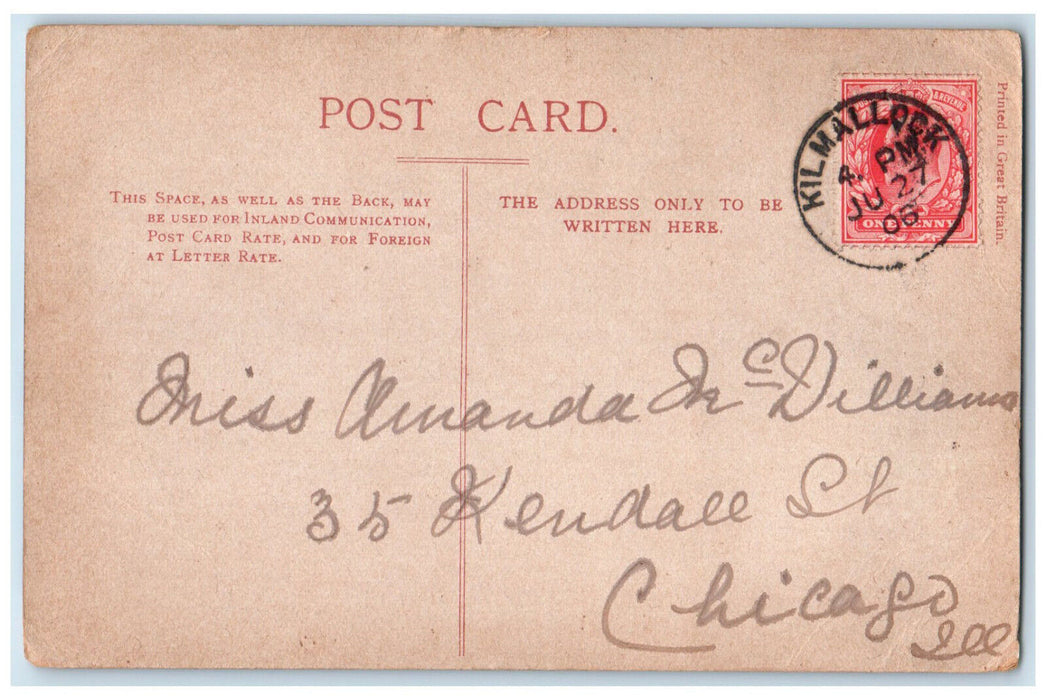 POST CARD.
THIS SPACE, AS WELL AS THE BACK, MAY
BE USED FOR INLAND COMMUNICATION,
POST CARD RATE, AND FOR FOREIGN
AT LETTER RATE.
THE ADDRESS ONLY TO BE
WRITTEN HERE.
KILMALLOCK
4. PM
JU 27
06
& REVENUE
ONE PENNY
Printed in Great Britain.
Miss Amanda Mc Williams
35 Kendall St
Chicago
Ill